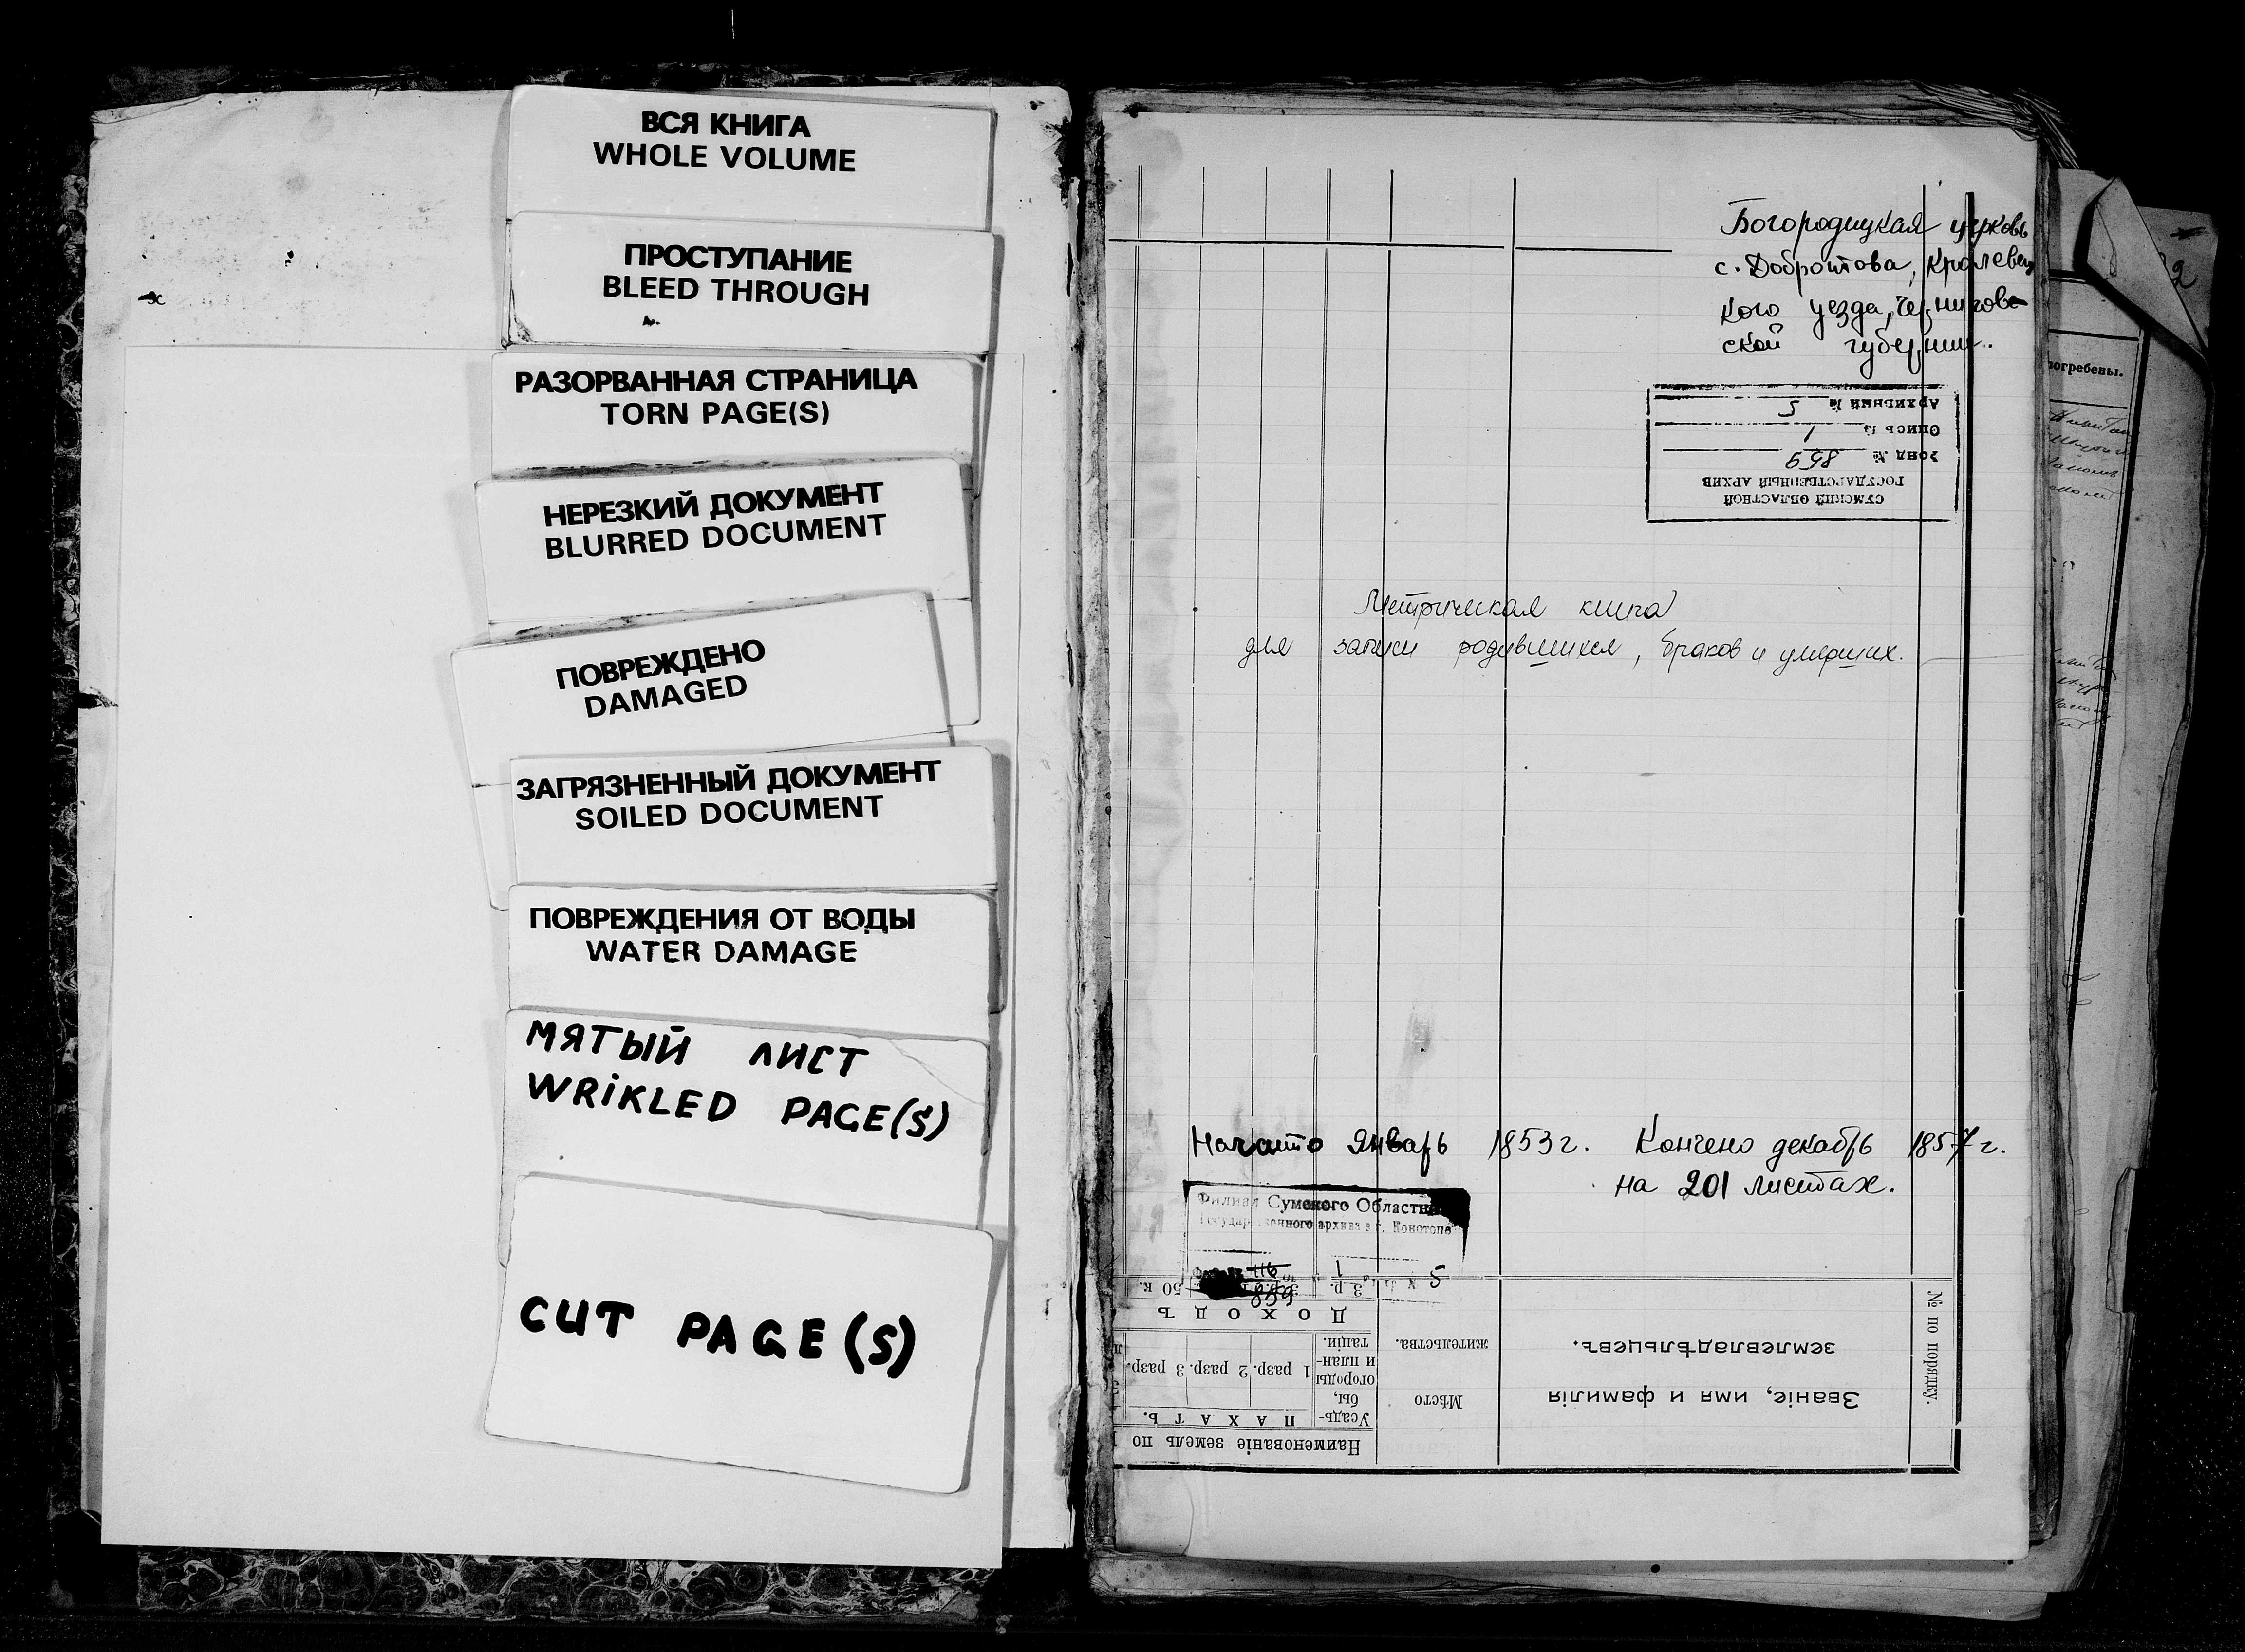 ВСЯ КНИГА
WHOLE VOLUME
ПРОСТУПАНИЕ
BLEED THROUGH
РАЗОРВАННАЯ СТРАНИЦА
TORN PAGE(S)
НЕРЕЗКИЙ ДОКУМЕНТ
BLURRED DOCUMENT
ПОВРЕЖДЕНО
DAMAGED
ЗАГРЯЗНЕННЫЙ ДОКУМЕНТ
SOILED DOCUMENT
ПОВРЕЖДЕНИЯ ОТ ВОДЫ
WATER DAMAGE
МЯТЫЙ ЛИСТ
WRIKLED PAGE(S)
CUT PAGE(S)
Богородицкая церковь
с. Добротова, Кролевец
кого уезда, Чернигов-
ской губернии.
СУМСКИЙ ОБЛАСТНОЙ
ГОСУДАРСТВЕННЫЙ АРХИВ
Фонд № 859
Опись № 1
Архивный № 5
Метрическая книга
для записи родившихся, браков и умерших.
Начато Январь 1853 г. Кончено декабрь 1857 г.
на 201 листах.
Филиал Сумского Областн
Государственного архива в г. Конотопе
116 1 5
859
№ по порядку.
Званіе, имя и фамилія
землевладѣльцевъ.
Мѣсто
жительства.
Наименованіе земель по
Усадь-
бы,
огороды
и план-
таціи.
ПАХАТЬ.
1 разр. 2 разр. 3 разр.
ДОХОДЪ
3 р. 50 к.
погребены.
2